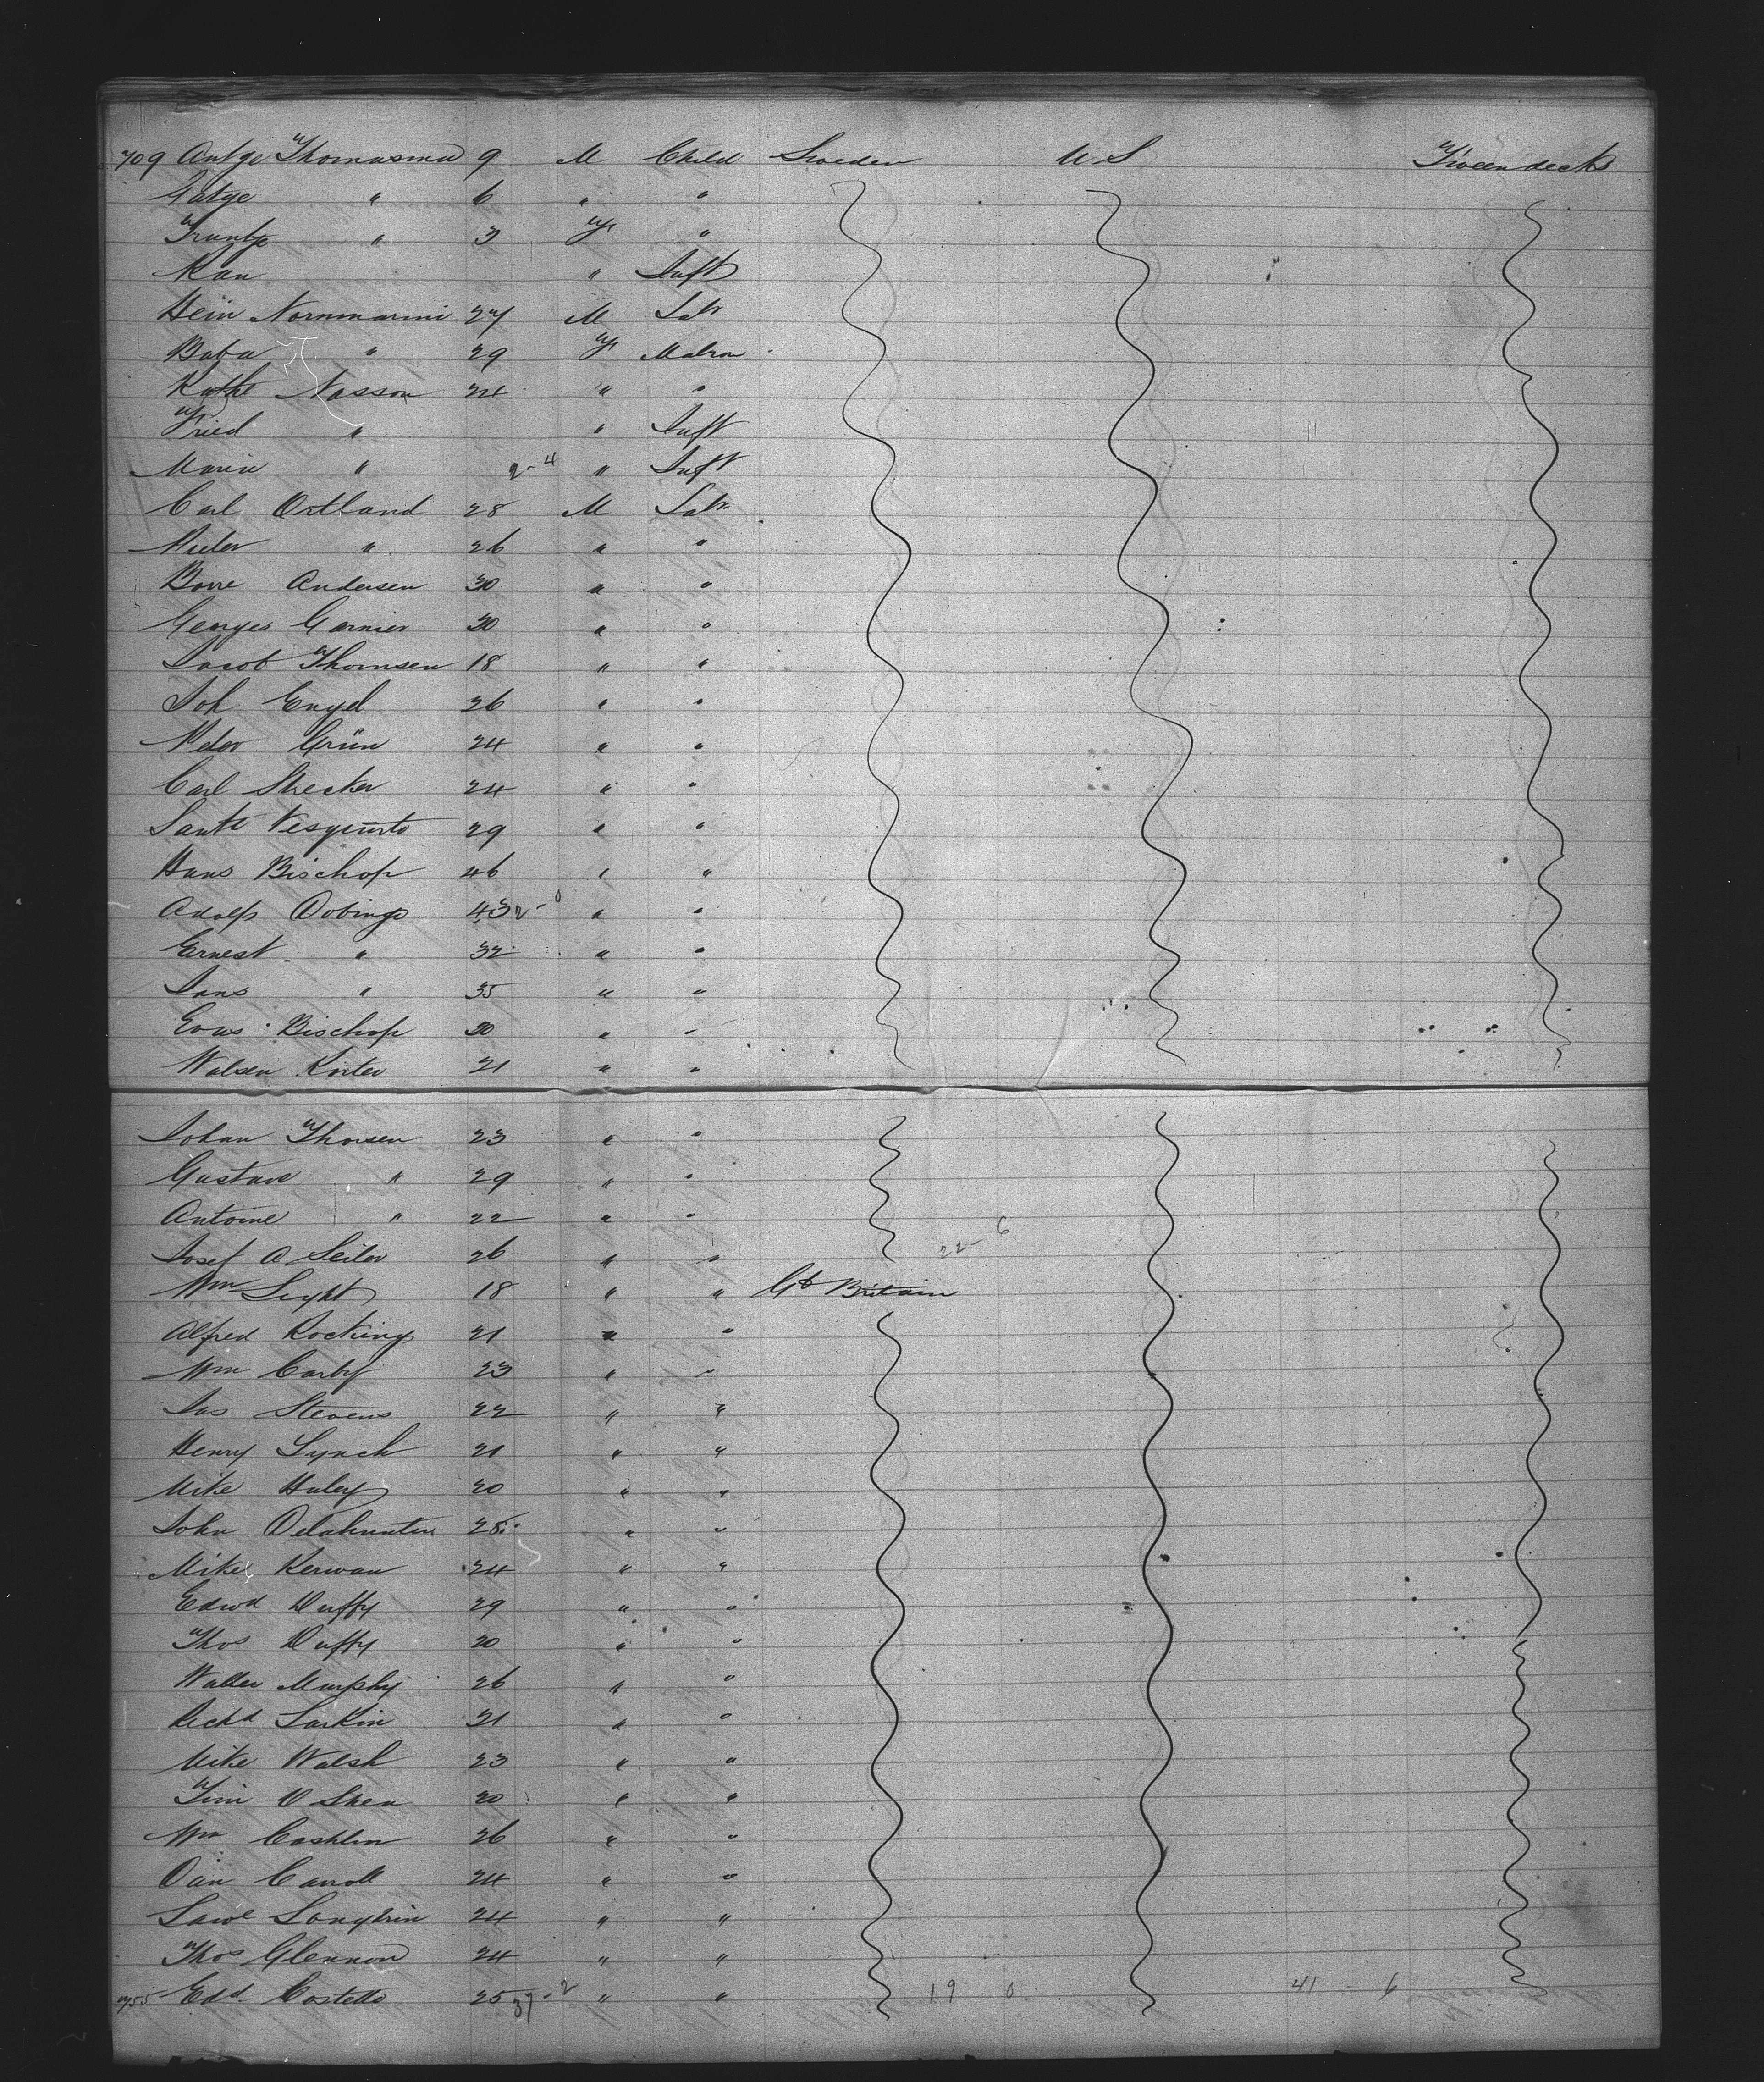 709 Antge Thomasma 9 M Child Sweden U S Tween decks
Gatge " 6 " "
Truntje " 3 F "
Kan " Inft
Hein Nornmarmi 27 M Labr
Baba " 29 F Matron
Kathe Nasson 24 " "
Fried " " Inft
Marie " 2-4 " Inft
Carl Ortland 28 M Labr
Peter " 26 " "
Borre Andersen 30 " "
Georges Garnier 30 " "
Jacob Thomsen 18 " "
Joh Engel 26 " "
Peter Grün 24 " "
Carl Strecker 24 " "
Sante 29 " "
Hans Bischop 46 " "
Adolf Dobings 43 2-0 " "
Ernest " 32 " "
Jans " 35 " "
Evus Bischop 30 " "
Walsen Korter 21 " "
Johan Thorsen 23 " "
Gustave " 29 " "
Antoine " 22 " "
Josef A Seiler 26 " " 22-6
Wm Light 18 " " Gt Britain
Alfred Rocking 21 " "
Wm Carby 23 " "
Jas Stevens 22 " "
Henry Lynch 21 " "
Mike Haley 20 " "
John Delahunten 28 " "
Mike Kerwan 24 " "
Edwd Duffy 29 " "
Thos Duffy 20 " "
Walter Murphy 26 " "
Richd Larkin 21 " "
Mike Walsh 23 " "
Tim O Shea 20 " "
Wm Coshlin 26 " "
Dan Carroll 24 " "
Lawe Loughrin 24 " "
Thos Glennon 24 " "
755 Edd Costello 25 37-2 " " 19 0 41-6